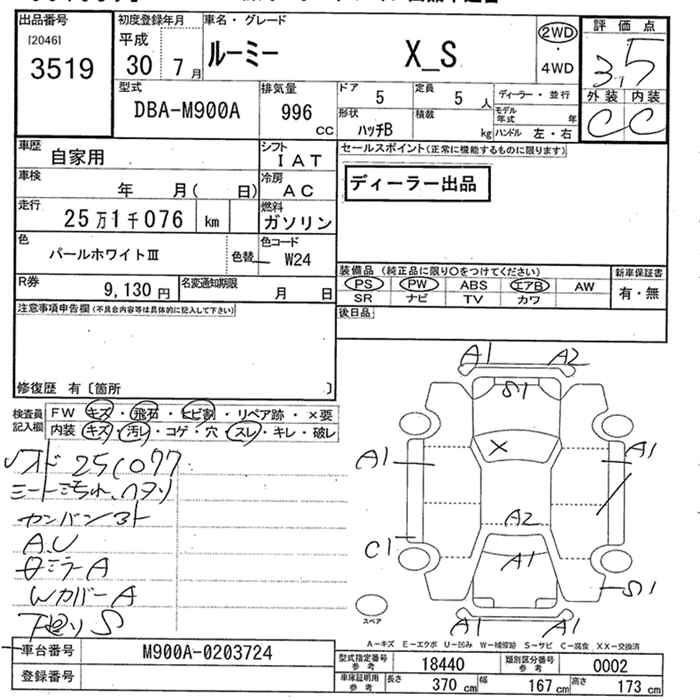 出品番号 初度登録年月 車名・グレード 評価点
[2046] 平成 ルーミー X_S 2WD
3519 30 7月 ・ 3.5
4WD 外装 内装
型式 排気量 ドア 定員 ディーラー・並行 C C
DBA-M900A 996 cc 5 5人 モデル年式 年
形状 積載
ハッチB kg ハンドル 左・右
車歴 シフト セールスポイント(正常に機能するものに限ります)
自家用 IAT
車検 冷房 ディーラー出品
年 月( 日) AC
走行 燃料
25万1千076 km ガソリン
色 色コード
パールホワイトⅢ 色替 W24
装備品(純正品に限り○をつけてください) 新車保証書
R券 名変通知期限 PS PW ABS エアB AW 有・無
9,130円 月 日 SR ナビ TV カワ
注意事項申告欄(不具合内容等は具体的に記入して下さい) 後日品
修復歴 有〔箇所 〕
検査員 FW キズ・飛石・ヒビ割・リペア跡・×要
記入欄 内装 キズ・汚レ・コゲ・穴・スレ・キレ・破レ
A1 A2
S1
251077
A1 X A1
A2
A.U
C1 A1
A
S1
WカバーA
下廻りS
A1 A1
スペア
A-キズ E-エクボ U-凹み W-補修跡 S-サビ C-腐食 XX-交換済
車台番号 M900A-0203724
型式指定番号 参考 18440 類別区分番号 参考 0002
登録番号
車庫証明用 参考 長さ 370cm 幅 167cm 高さ 173cm